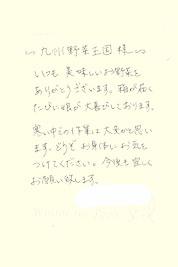 九州野菜王国 様
いつも 美味しいお野菜を
ありがとうございます。箱が届く
たびに娘が大喜びしております。
寒い中での作業は大変かと思い
ます。どうぞ お身体にお気を
つけてください。今後も宜しく
お願い致します。